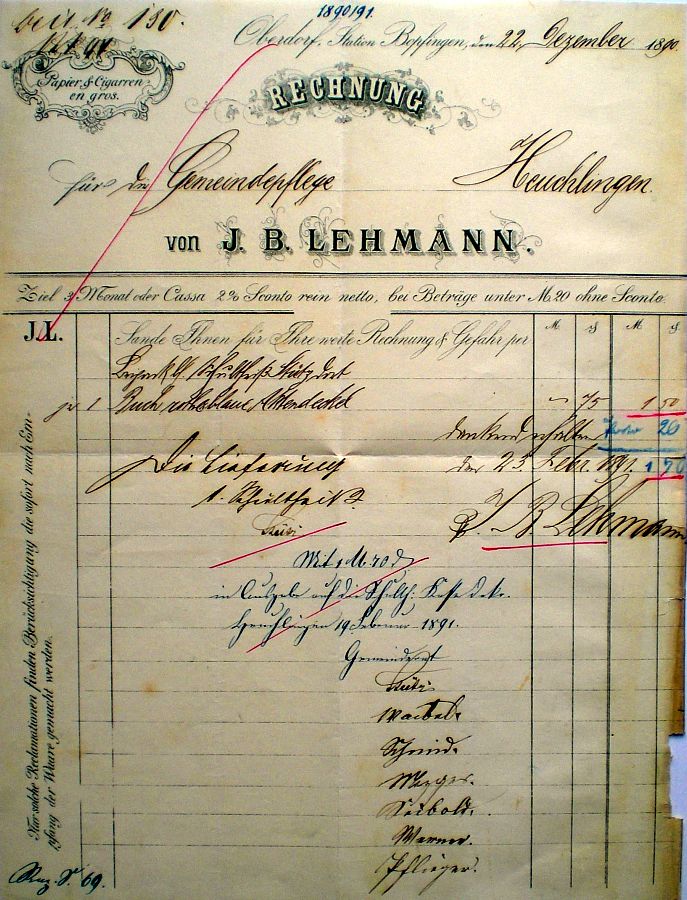 Beil. No 130.
1890/91.
Oberdorf, Station Bopfingen, den 22. Dezember 1890.
Papier & Cigarren
en gros.
RECHNUNG
für die Gemeindepflege Heuchlingen.
von J. B. LEHMANN.
Ziel 3 Monat oder Cassa 2% Sconto rein netto, bei Beträge unter M. 20 ohne Sconto.
J.L. Sande Ihnen für Ihre werte Rechnung & Gefahr per M ₰ M ₰
Schultheiß
je 1 Buch 75 1 50
dankend erhalten
Porto 20
Die Lieferung den 23. Febr. 1891. 1,70
t. Schultheiß.
J B Lehmann
Mit 1 M. 70 d
in Ausgabe auf die
Heuchlingen 19. Februar 1891.
Gemeinderat
Waibel.
Schmid.
Merger.
Seibold.
Werner.
Pflieger.
Nur solche Reclamationen finden Berücksichtigung die sofort nach Em-
pfang der Waare gemacht werden.
69.